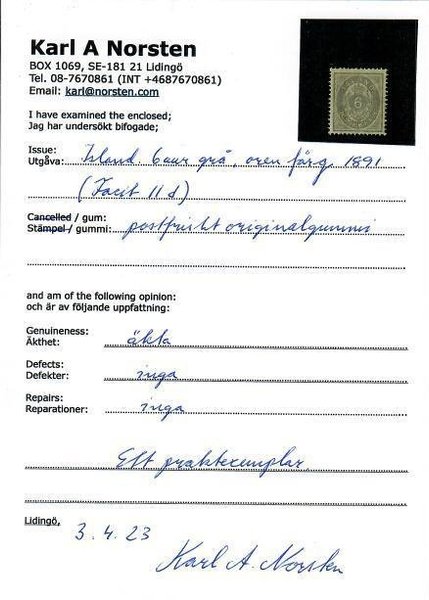 Karl A Norsten
BOX 1069, SE-181 21 Lidingö
Tel. 08-7670861 (INT +4687670861)
Email: karl@norsten.com
I have examined the enclosed;
Jag har undersökt bifogade;
Issue:
Utgåva: Island 6 aur grå, oren färg 1891
(Facit 11 d)
Cancelled / gum:
Stämpel / gummi: postfriskt originalgummi
and am of the following opinion:
och är av följande uppfattning:
Genuineness:
Äkthet: äkta
Defects:
Defekter: inga
Repairs:
Reparationer: inga
Ett praktexemplar
Lidingö,
3.4.23
Karl A. Norsten
6